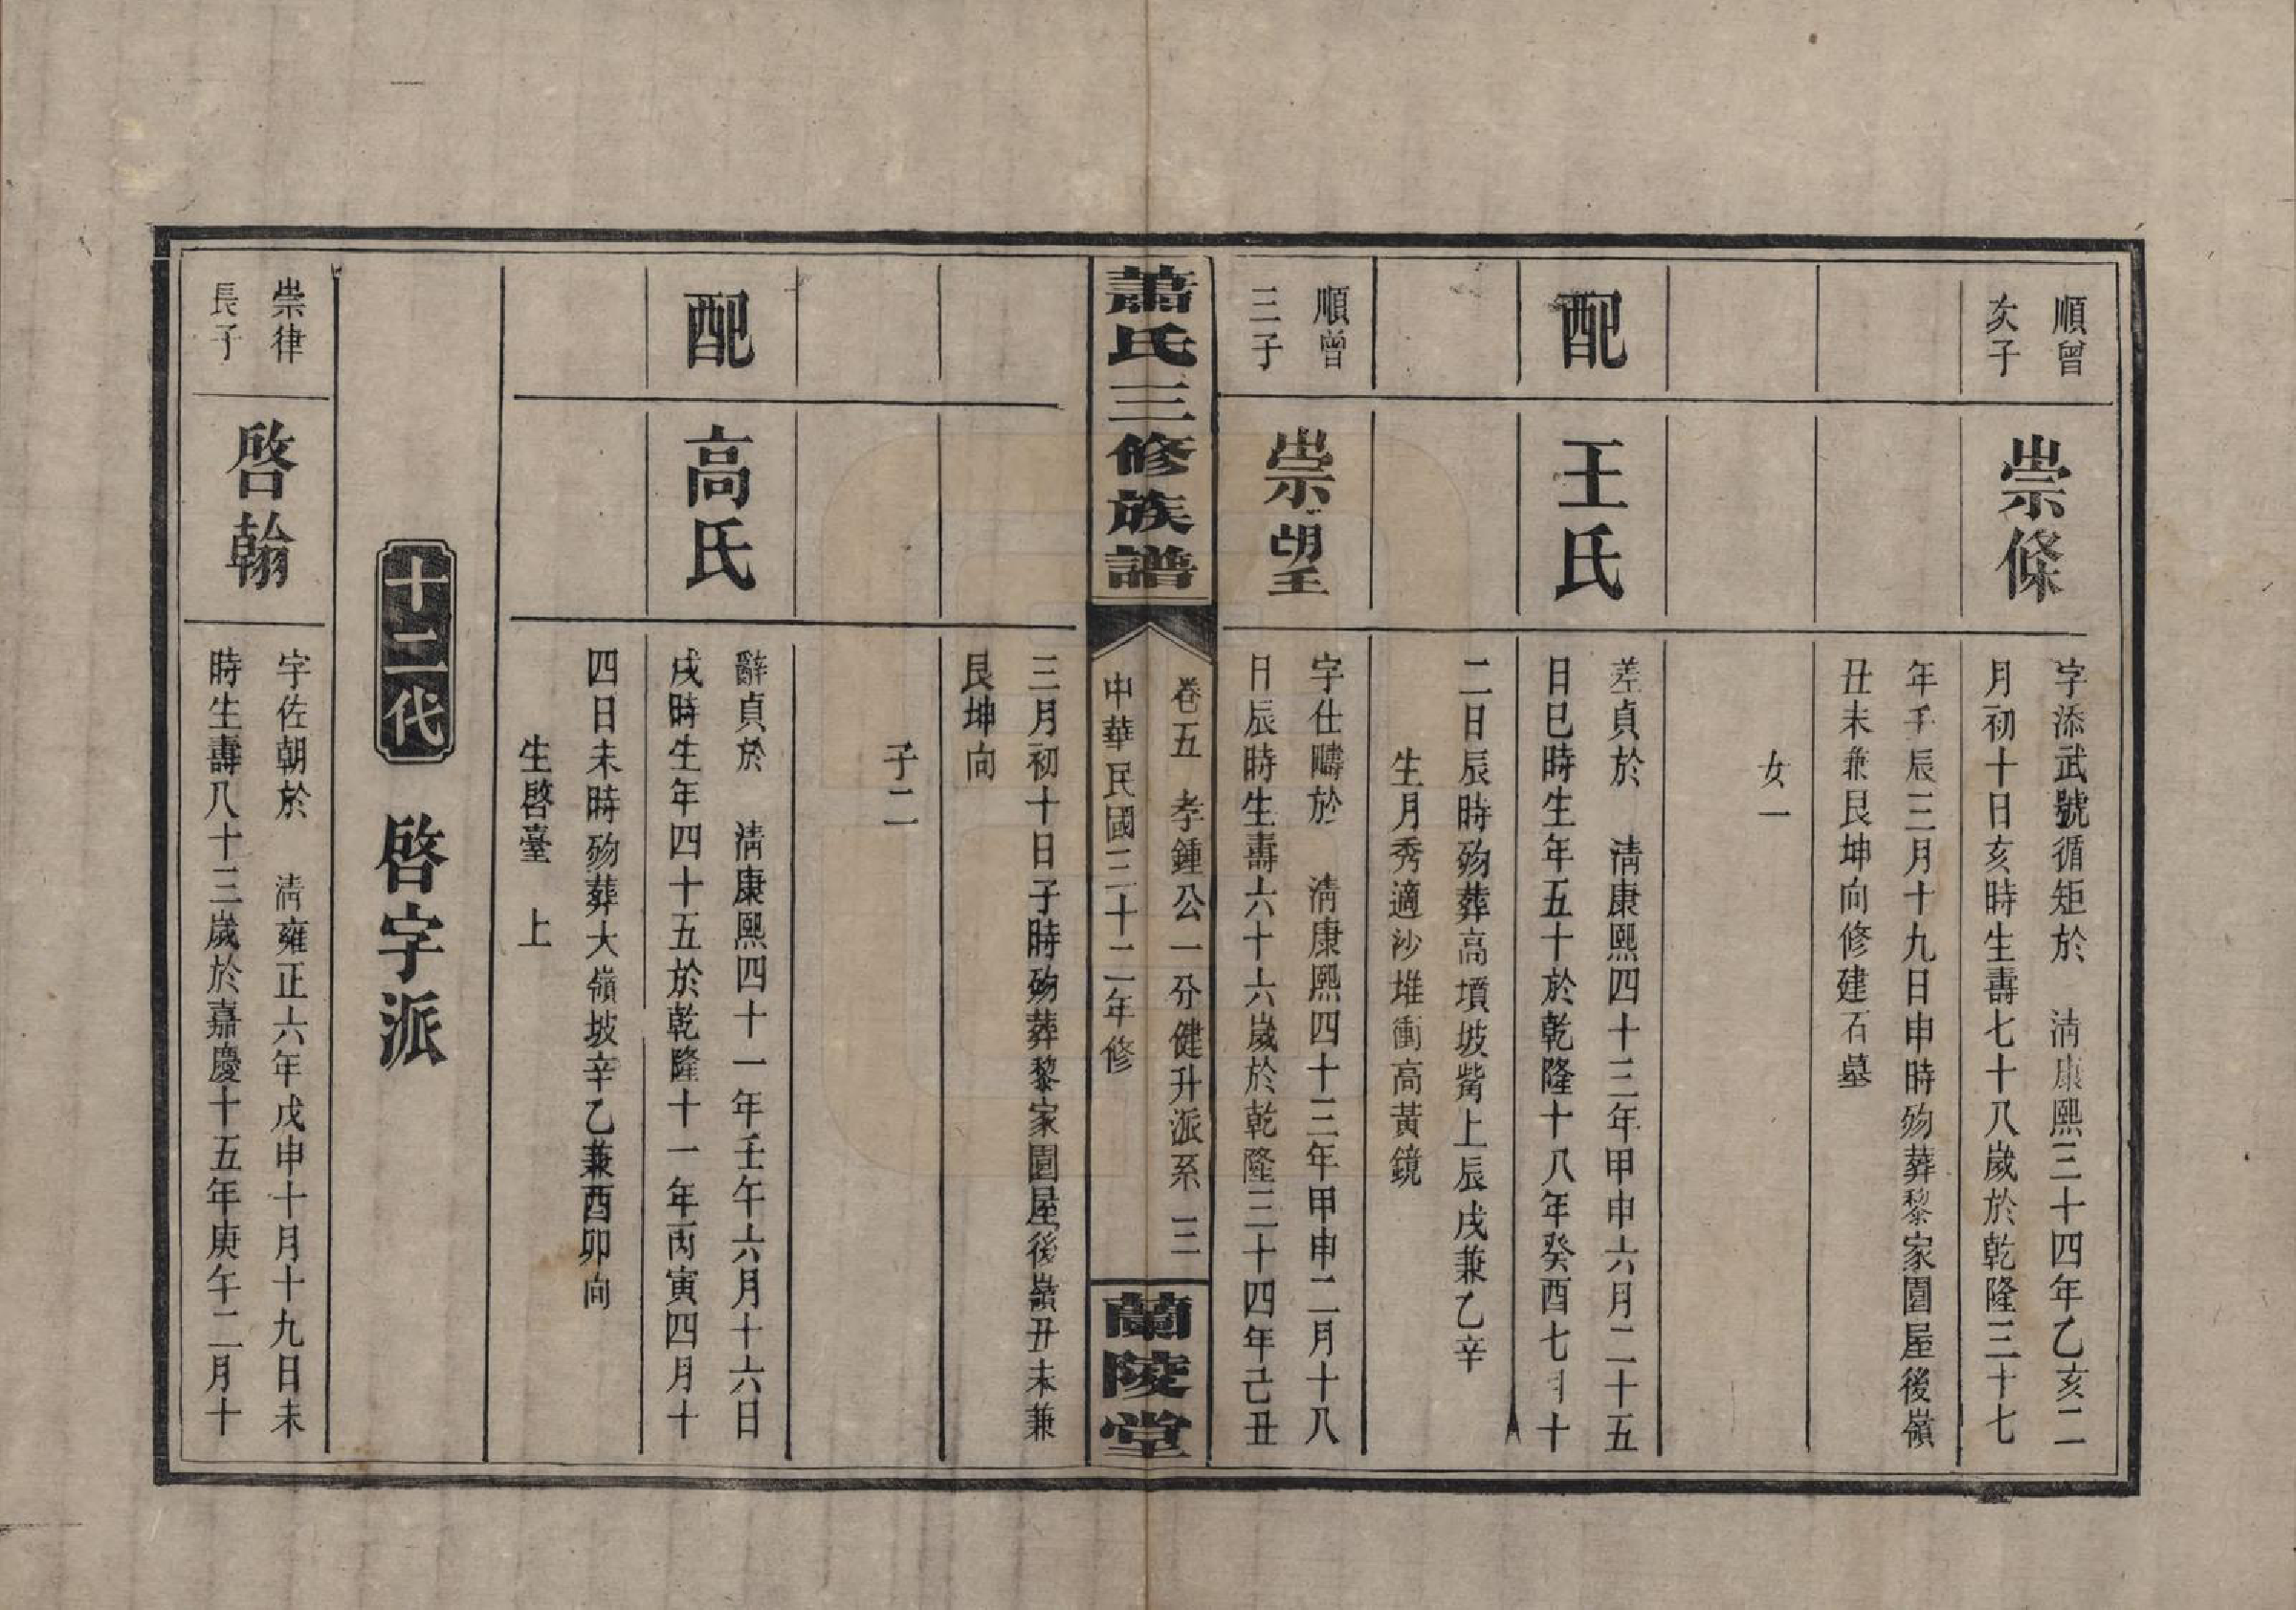 順曾
次子
崇條
字添武號循矩於　清康熙三十四年乙亥二
月初十日亥時生壽七十八歲於乾隆三十七
年壬辰三月十九日申時歿葬黎家園屋後嶺
丑未兼艮坤向修建石墓
女一
配
王氏
差貞於　清康熙四十三年甲申六月二十五
日巳時生年五十於乾隆十八年癸酉七月十
二日辰時歿葬高墳坡觜上辰戌兼乙辛
生月秀適沙堆衝高黃鏡
順曾
三子
崇望
字仕疇於　清康熙四十三年甲申二月十八
日辰時生壽六十六歲於乾隆三十四年己丑
蕭氏三修族譜
卷五　孝鍾公一分健升派系　三
中華民國三十二年修
蘭陵堂
三月初十日子時歿葬黎家園屋後嶺丑未兼
艮坤向
子二
配
高氏
辭貞於　清康熙四十一年壬午六月十六日
戌時生年四十五於乾隆十一年丙寅四月十
四日未時歿葬大嶺坡辛乙兼酉卯向
生啓臺　上
十二代
啓字派
崇律
長子
啓翰
字佐朝於　清雍正六年戊申十月十九日未
時生壽八十三歲於嘉慶十五年庚午二月十